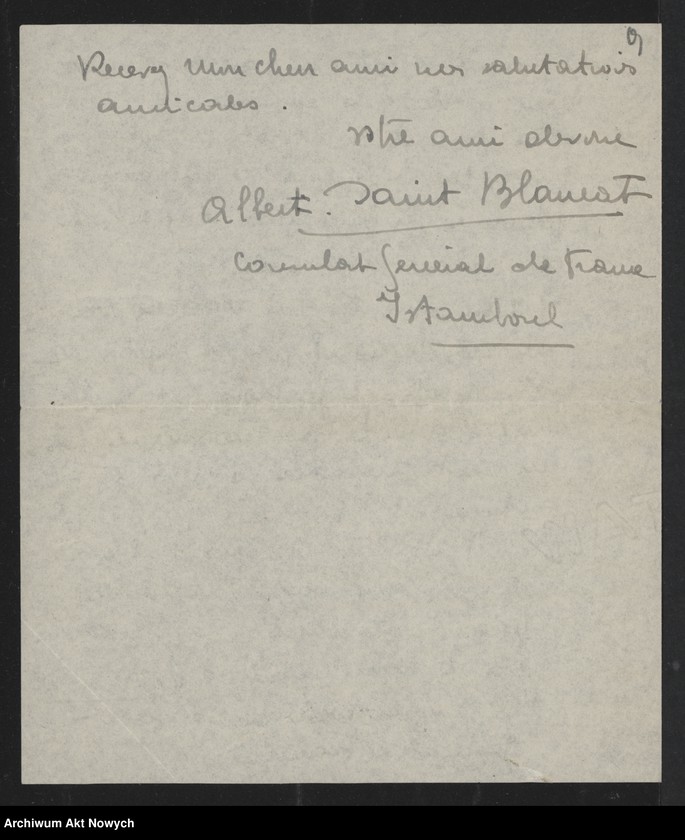 9
Recevez mon cher ami mes salutations
amicales.
votre ami devoué
Albert. Saint Blancat
Consulat General de France
Istamboul
Archiwum Akt Nowych